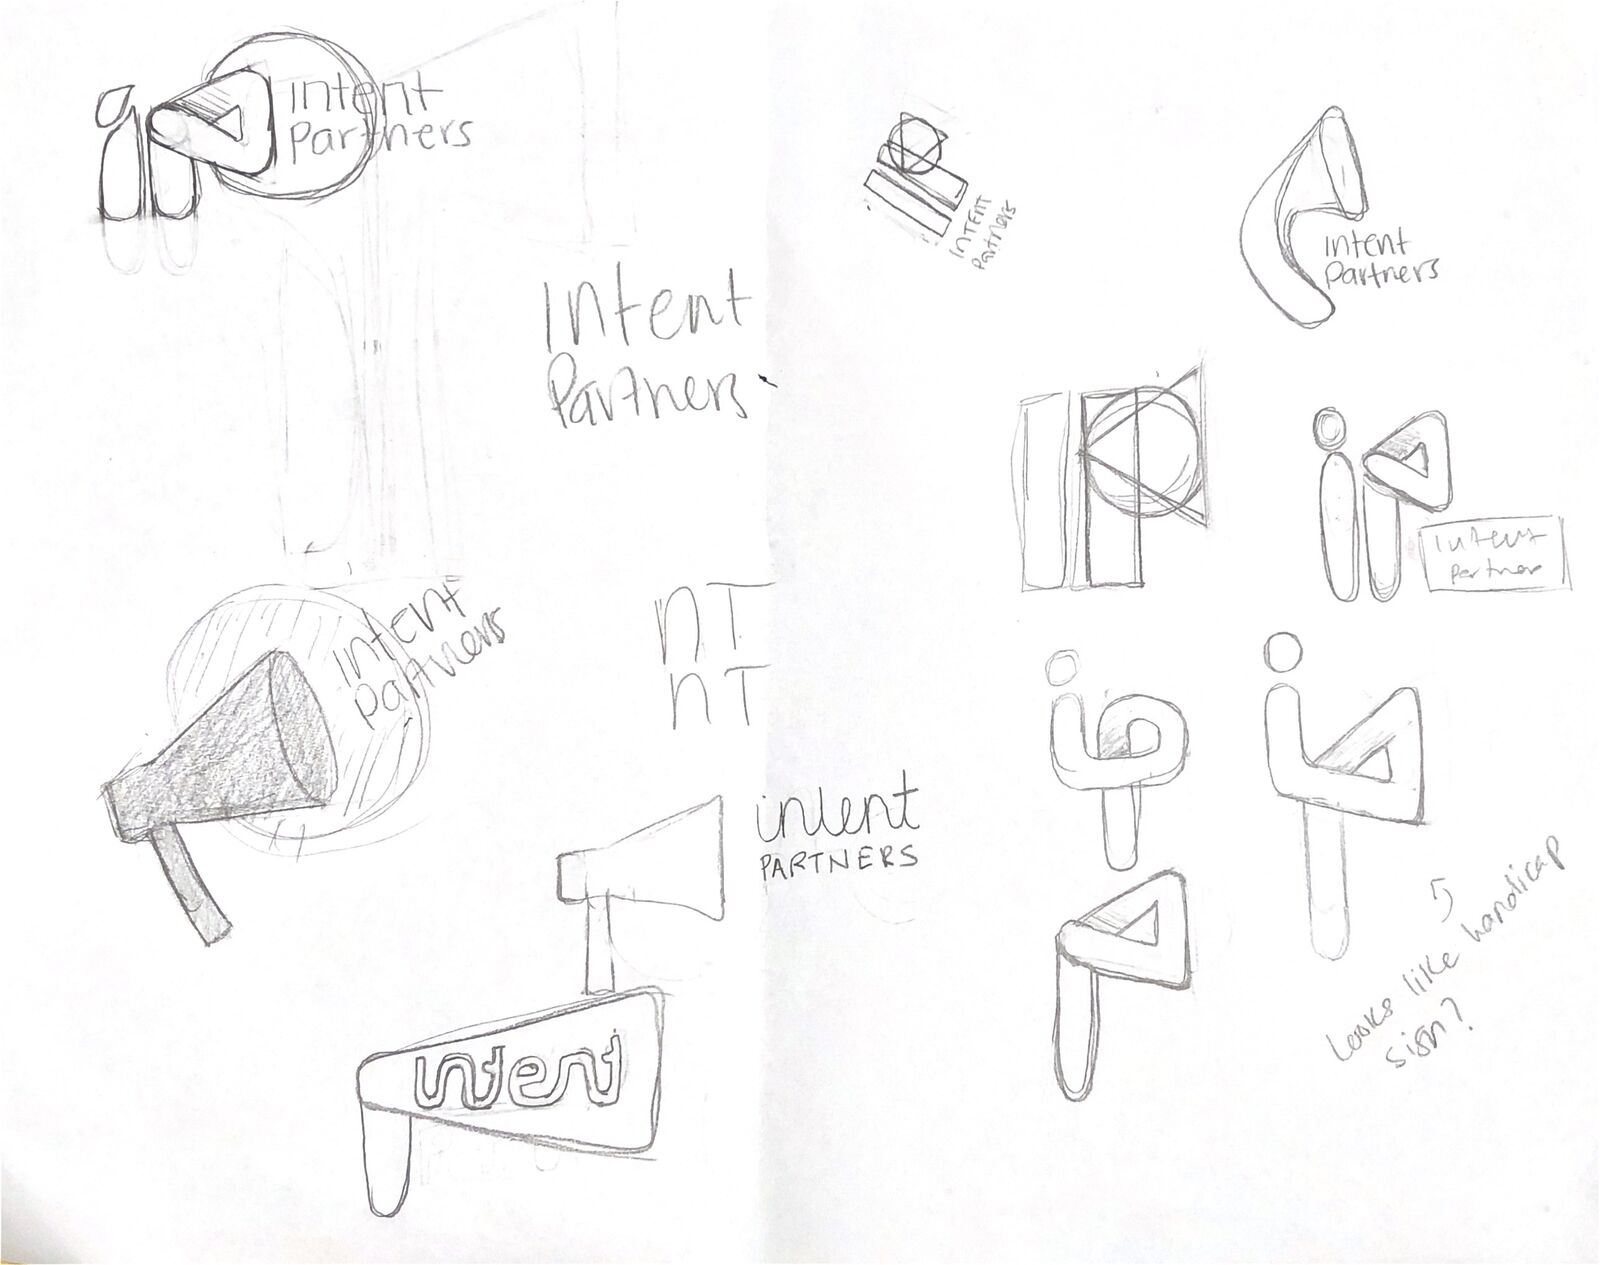 Intent
Partners
Intent
Partners
Intent
Partners
nT
nT
intent
PARTNERS
intent
INTENT
Partners
Intent
Partners
ip
Intent
Partner
ip
ip
Looks like handicap
sign?